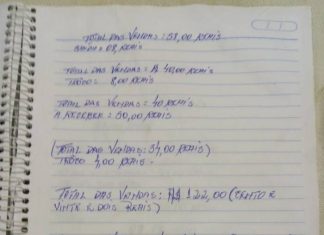 TOTAL DAS VENDAS: 58,00 REAIS
08 REAIS
TOTAL DAS VENDAS = R$ 40,00 REAIS
TROCO = 8,00 REAIS
TOTAL DAS VENDAS = 40 REAIS
A RECEBER = 50,00 REAIS
(TOTAL DAS VENDAS: 34,00 REAIS)
TROCO 1,00 REAIS
TOTAL DAS VENDAS: R$ 122,00 (CENTO E
VINTE E DOIS REAIS)